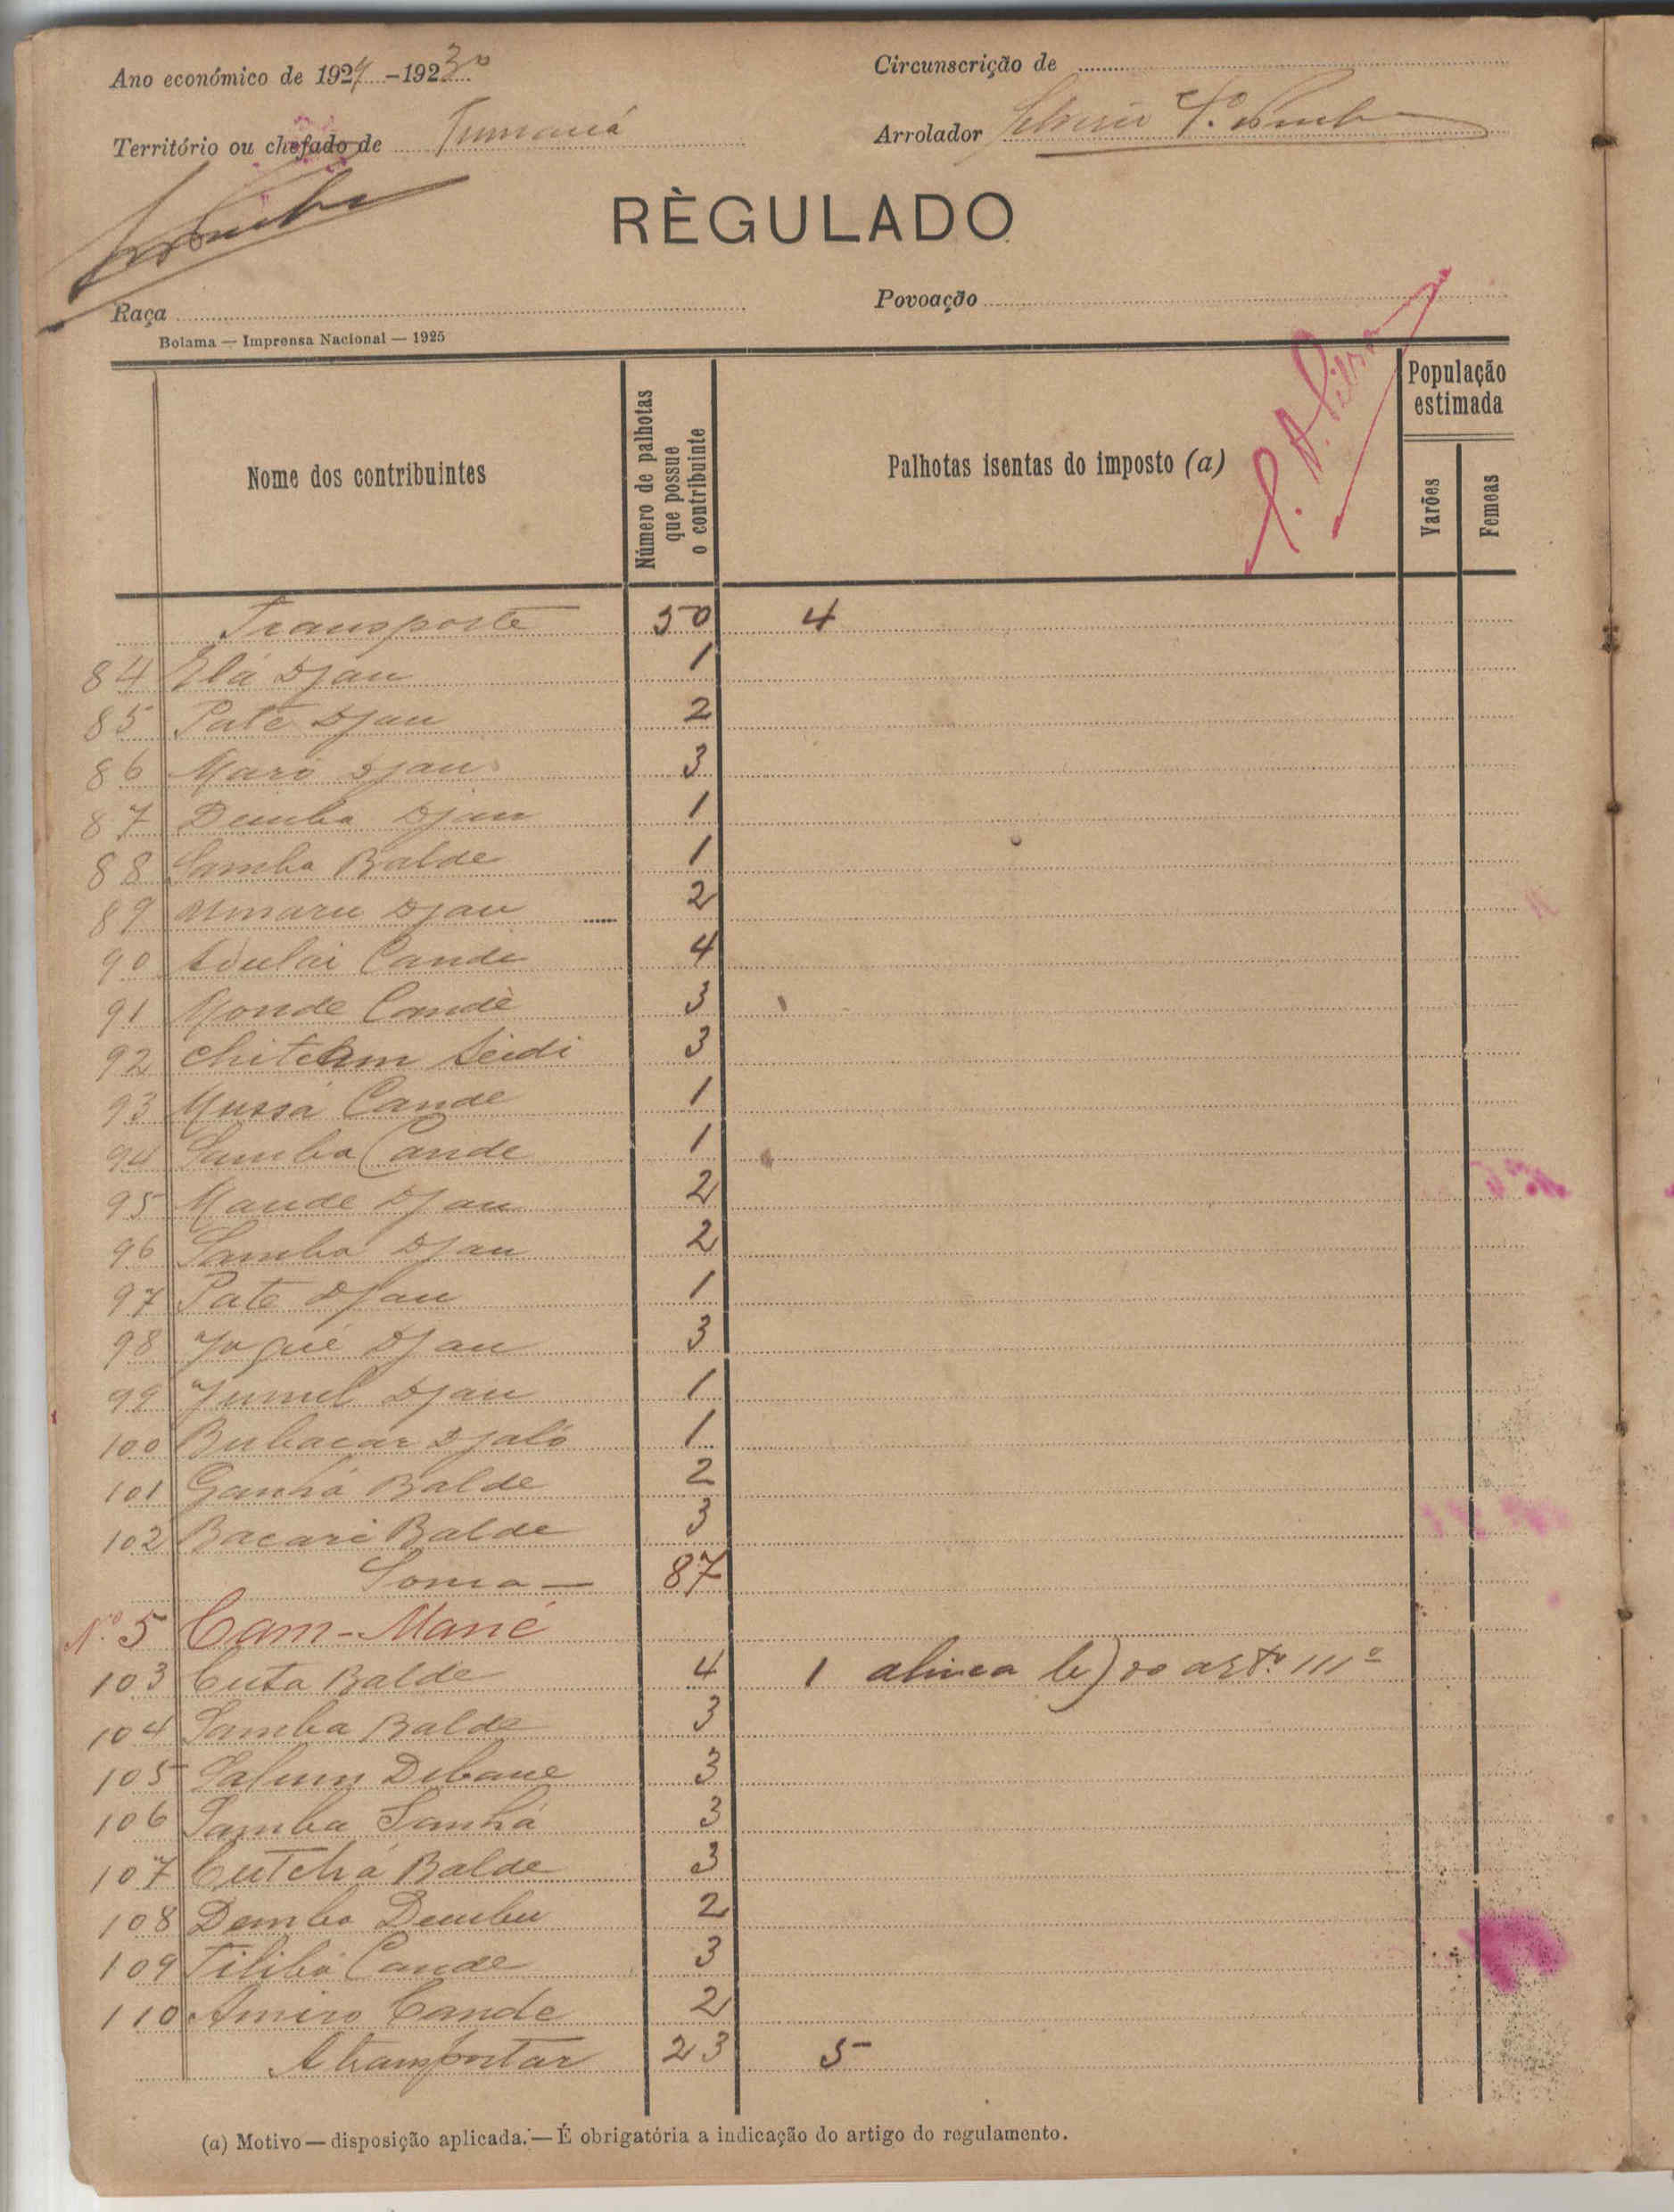 Ano económico de 1929-1930
Circunscrição de
Território ou chefado de Tumaná
Arrolador
RÈGULADO
Raça
Povoação
Bolama — Imprensa Nacional — 1925
Nome dos contribuintes
Número de palhotas que possue o contribuinte
Palhotas isentas do imposto (a)
População estimada
Varões
Femeas
Transporte 50 4
84 Elá Djau 1
85 Paté Djau 2
86 Maró Djau 3
87 Demba Djau 1
88 Samba Balde 1
89 Umaru Djau 2
90 Adulai Cande 4
91 Monde Candè 3
92 Seidi 3
93 Mussá Cande 1
94 Samba Cande 1
95 Maude Djau 2
96 Samba Djau 2
97 Pate Djau 1
98 Djau 3
99 Djau 1
100 Bubacar Djaló 1
101 Ganhá Balde 2
102 Bacari Balde 3
Soma — 87
N.º 5 Cam-Mané
103 Cuta Balde 4 1 alinea b) do art.º 111º
104 Samba Balde 3
105 3
106 Samba Sanhá 3
107 Cutchá Balde 3
108 Demba Dembu 2
109 Tilibó Cande 3
110 Amiro Cande 2
A transportar 23 5
(a) Motivo — disposição aplicada. — É obrigatória a indicação do artigo do regulamento.